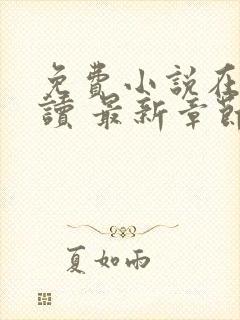 免費小說在
讀 最新章節
夏如雨